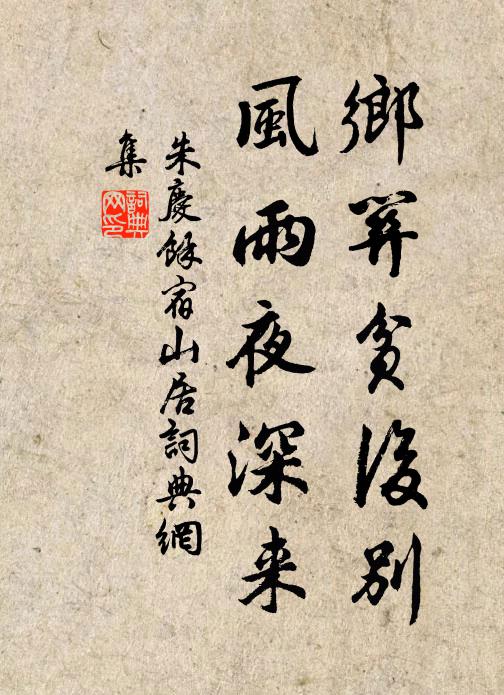 鄉關貧後別
風雨夜深来
朱慶餘宿山居詞典網
集
詞典
网印